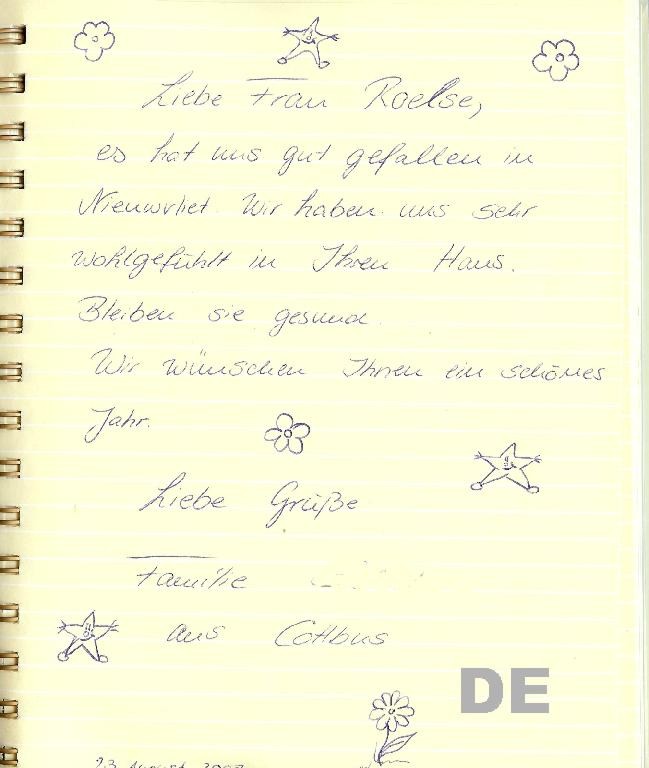 Liebe Frau Roelse,
es hat uns gut gefallen in
Nieuwvliet. Wir haben uns sehr
wohlgefühlt in Ihren Haus.
Bleiben sie gesund.
Wir wünschen Ihnen ein schönes
Jahr.
Liebe Grüße
Familie
aus Cottbus
DE
23 August